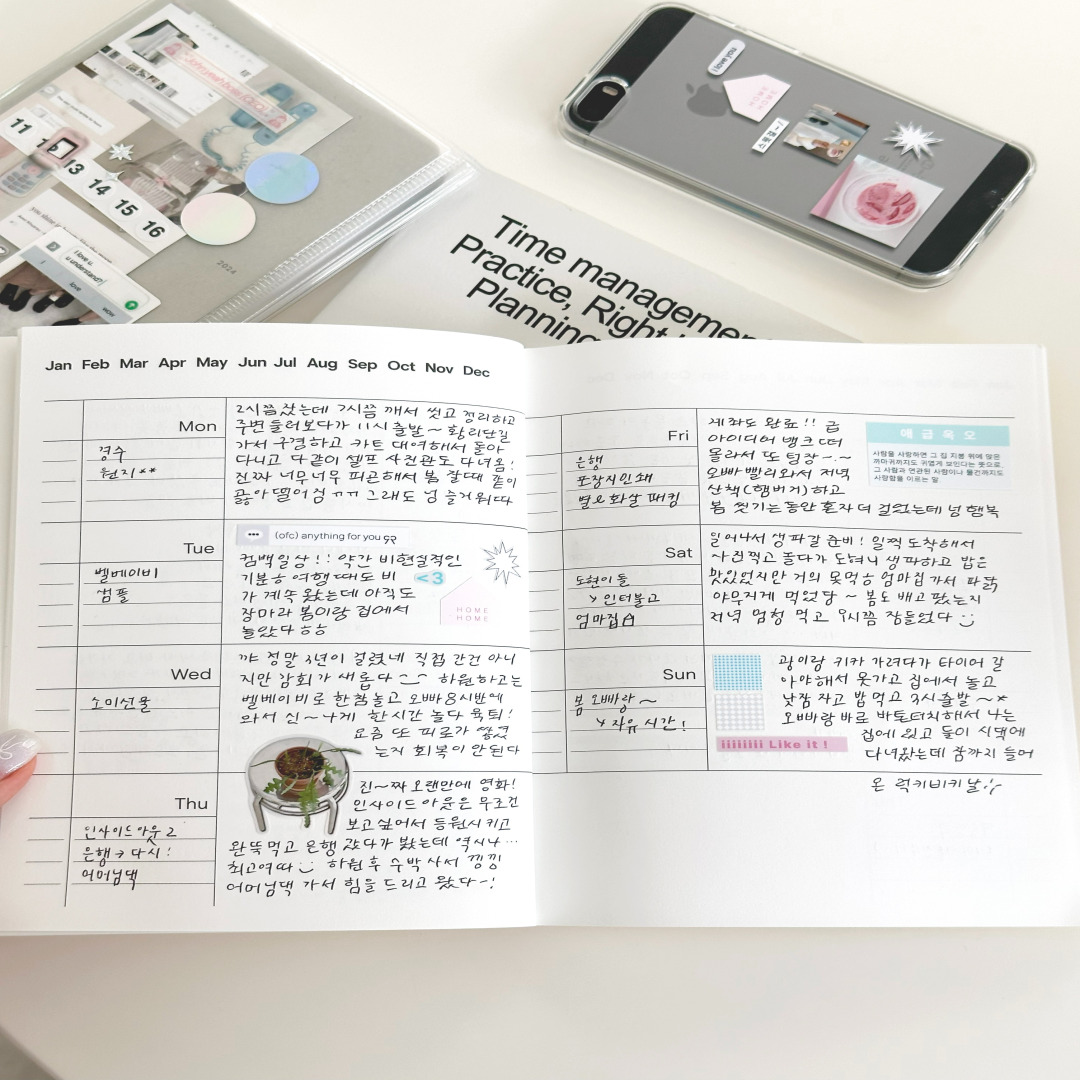 11
13
14
15
16
I love u.
u understand?
love
wow
2024
now playing
HOME
HOME
Time managemen
Practice, Right
Planning
Jan Feb Mar Apr May Jun Jul Aug Sep Oct Nov Dec
Mon
경수
원지**
2시쯤 잤는데 7시쯤 깨서 씻고 정리하고
주변 둘러보다가 11시 출발 ~ 황리단길
가서 구경하고 카트 대여해서 돌아
다니고 다같이 셀프 사진관도 다녀옴!
진짜 너무너무 피곤해서 봄 잘때 같이
곯아떨어짐 ㅠㅠ 그래도 넘 즐거웠다
Tue
벨베이비
샘플
(ofc) anything for you
컴백일상!! 약간 비현실적인
기분ㅎ 여행때도 비
<3
가 계속 왔는데 아직도
장마라 봄이랑 집에서
놀았다ㅎㅎ
HOME
HOME
Wed
소미선물
꺄 정말 1년이 걸렸네 직접 간건 아니
지만 감회가 새롭다 하원하고는
벨베이비로 한참놀고 오빠 8시반에
와서 신~나게 한시간 놀다 육퇴!
요즘 또 피로가 쌓였
는지 회복이 안된다
Thu
인사이드아웃2
은행→다시!
어머님댁
진~짜 오랜만에 영화!
인사이드 아웃은 무조건
보고싶어서 등원시키고
완뚝먹고 은행 갔다가 봤는데 역시나...
최고여따 하원후 수박 사서 낑낑
어머님댁 가서 힘을 드리고 왔다~!
Fri
은행
포장지인쇄
별요화살 패킹
계좌도 완료!! 급
아이디어 뱅크 떠
몰라서 또 텅장~.~
오빠 빨리와서 저녁
산책(햄버거)하고
봄 씻기는동안 혼자 더 걸었는데 넘 행복
애급옥오
사람을 사랑하면 그 집 지붕 위에 앉은
까마귀까지도 귀엽게 보인다는 뜻으로,
그 사람과 연관된 사람이나 물건까지도
사랑함을 이르는 말
Sat
도현이돌
↳인터불고
엄마집
일어나서 생파갈 준비! 일찍 도착해서
사진찍고 놀다가 도혀니 생파하고 밥은
맛있었지만 거의 못먹ㅎ 엄마집 가서 파닭
야무지게 먹었당 ~ 봄도 배고팠는지
저녁 엄청 먹고 9시쯤 잠들었다
Sun
봄 오빠랑 ~
↳자유시간!
iiiiiiii Like it !
광이랑 키카 가려다가 타이어 갈
아야해서 못가고 집에서 놀고
낮잠 자고 밥 먹고 3시출발 ~*
오빠랑 바로 바톤터치해서 나는
집에 있고 둘이 시댁에
다녀왔는데 잠까지 들어
온 럭키비키날